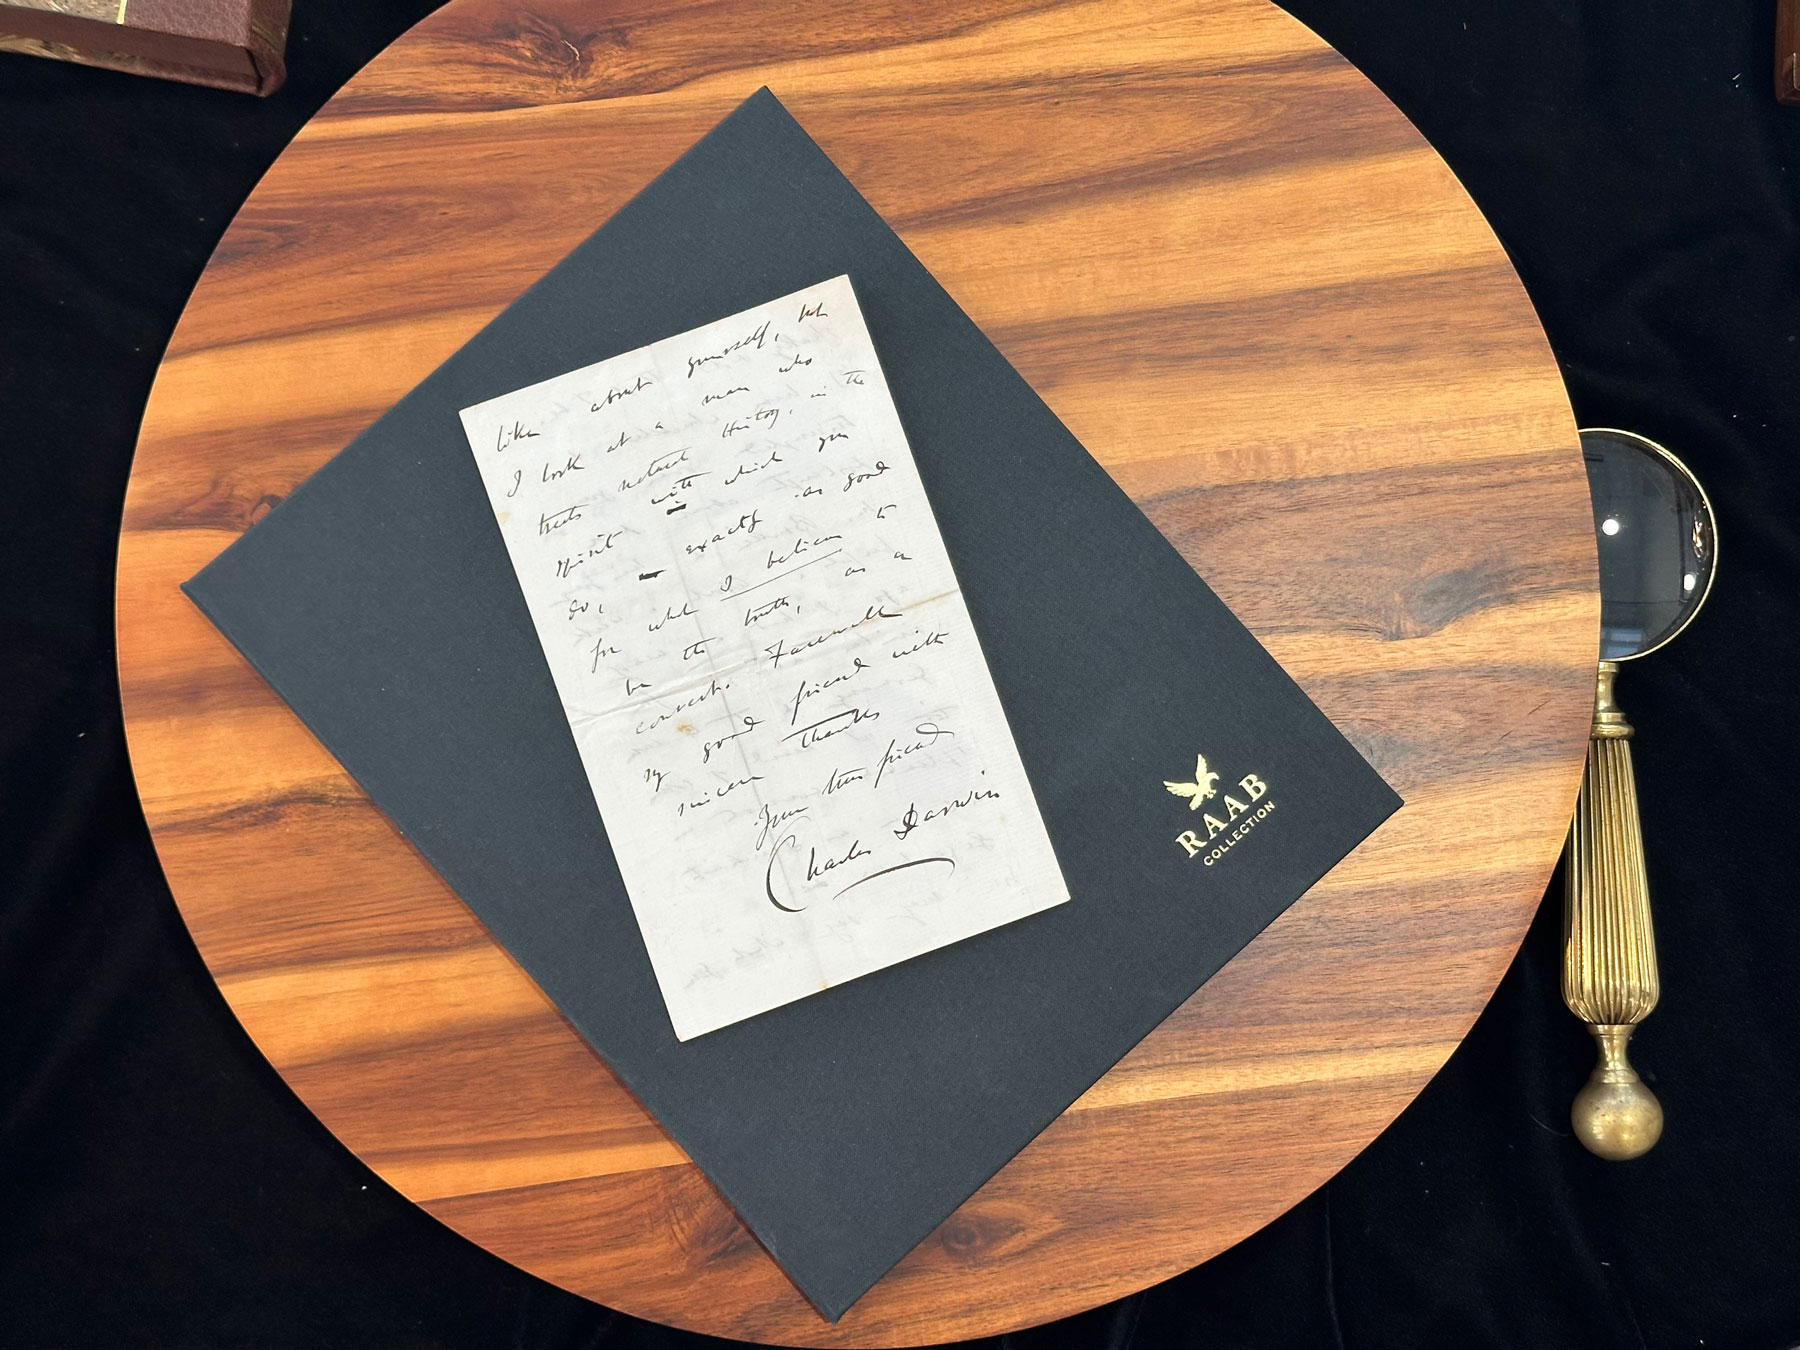 like about yourself, but
I look at a man who
treats natural History, in the
spirit with which you
do, exactly as good
for what I believe to
be the truth, as a
convert. Farewell
my good friend with
sincere thanks
Your true friend
Charles Darwin
RAAB
COLLECTION